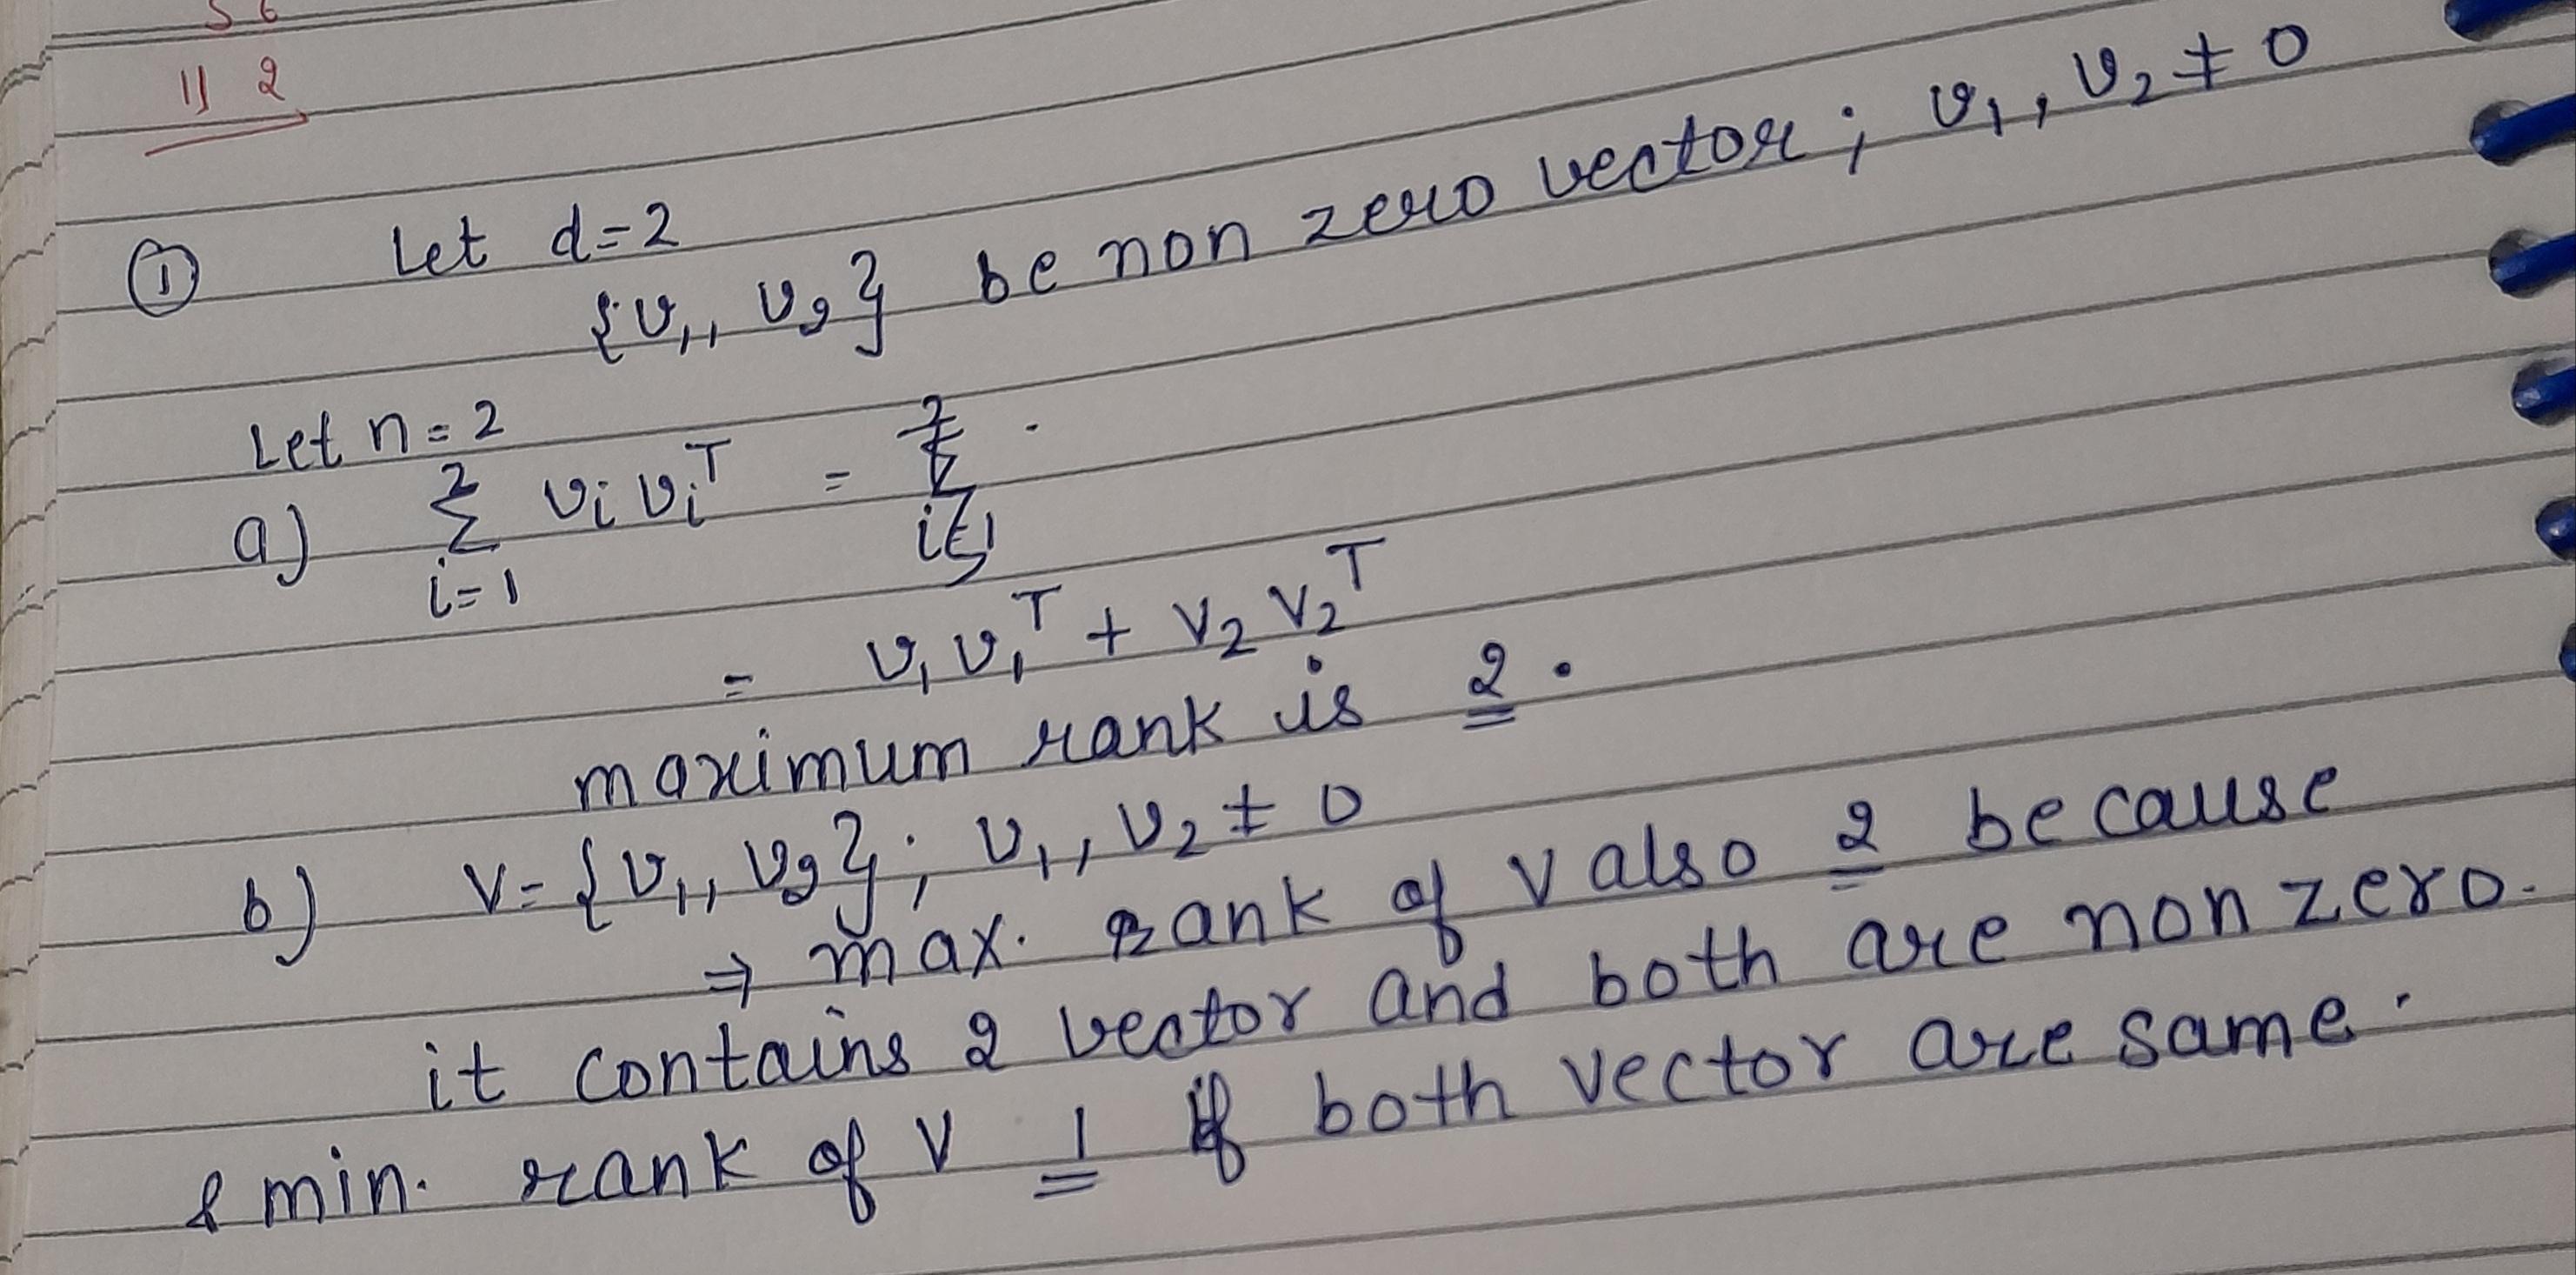 5 6
11 2
① Let d=2
{v₁, v₂} be non zero vector ; v₁, v₂ ≠ 0
Let n=2
a) 2 Σ i=1 vᵢ vᵢᵀ =
= v₁ v₁ᵀ + v₂ v₂ᵀ
maximum rank is 2 .
b) V= {v₁, v₂} ; v₁, v₂ ≠ 0
⇒ max. rank of V also 2 because
it contains 2 vector and both are non zero.
& min. rank of V 1 if both vector are same .